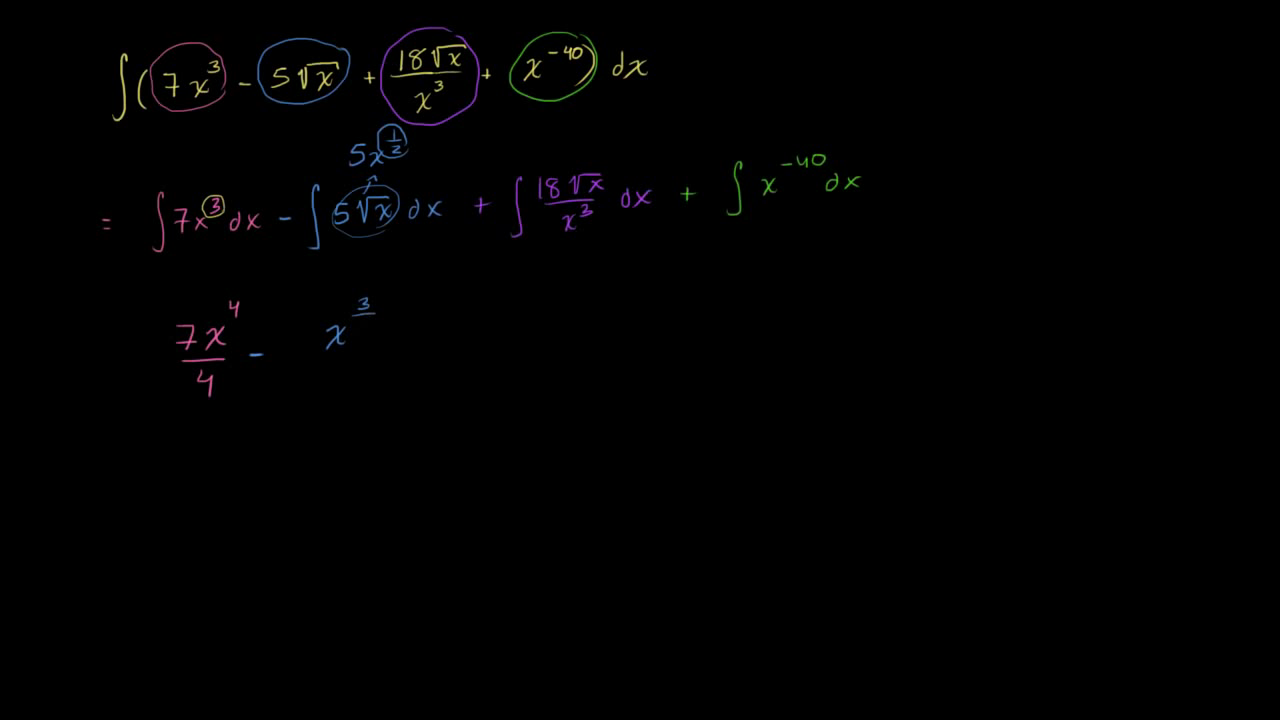 ∫(7x³ - 5√x + 18√x/x³ + x⁻⁴⁰) dx
5x^(1/2)
= ∫7x³ dx - ∫5√x dx + ∫18√x/x³ dx + ∫x⁻⁴⁰ dx
7x⁴/4 - x^3